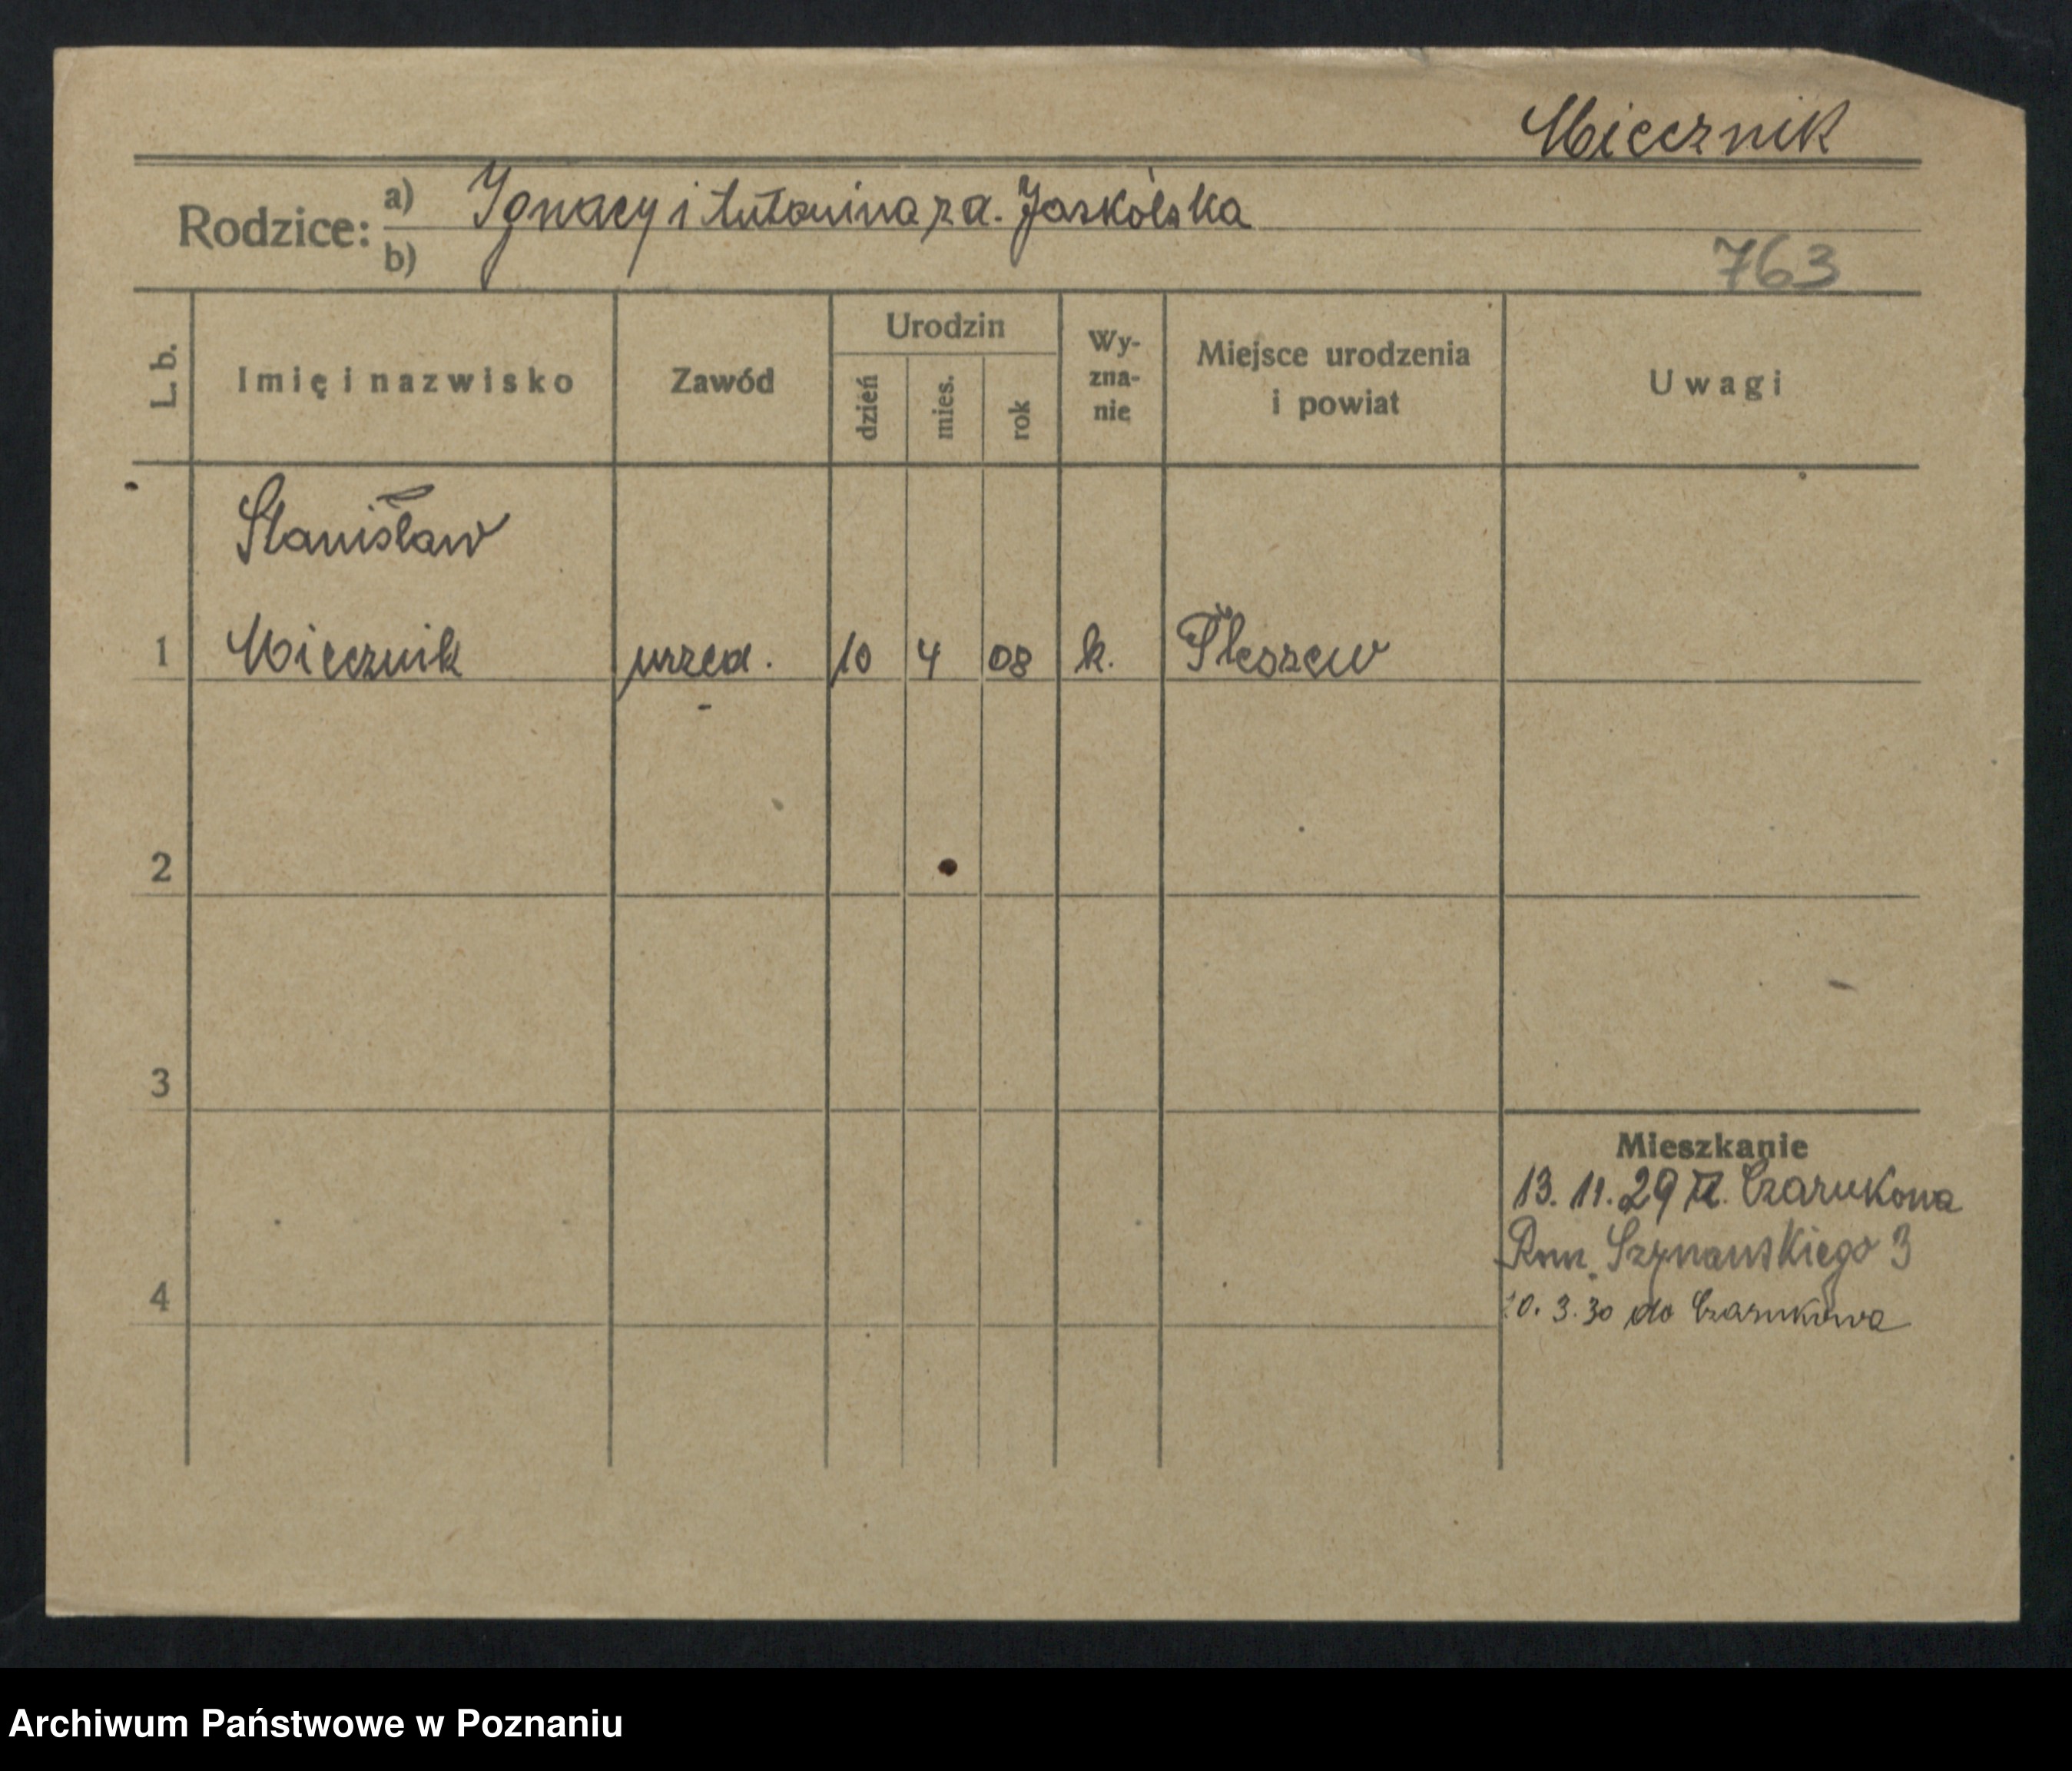 Miecznik
Rodzice: a) Ignacy i Antonina z d. Jaskólska
b)
763
L. b.
Imię i nazwisko
Zawód
Urodzin
dzień
mies.
rok
Wy-
zna-
nie
Miejsce urodzenia
i powiat
Uwagi
Stanisław
1 Miecznik urzęd. 10 4 08 k. Pleszew
2
3
Mieszkanie
13. 11. 29 z Czarnkowa
Szymańskiego 3
4
0. 3. 30 do Czarnkowa
Archiwum Państwowe w Poznaniu